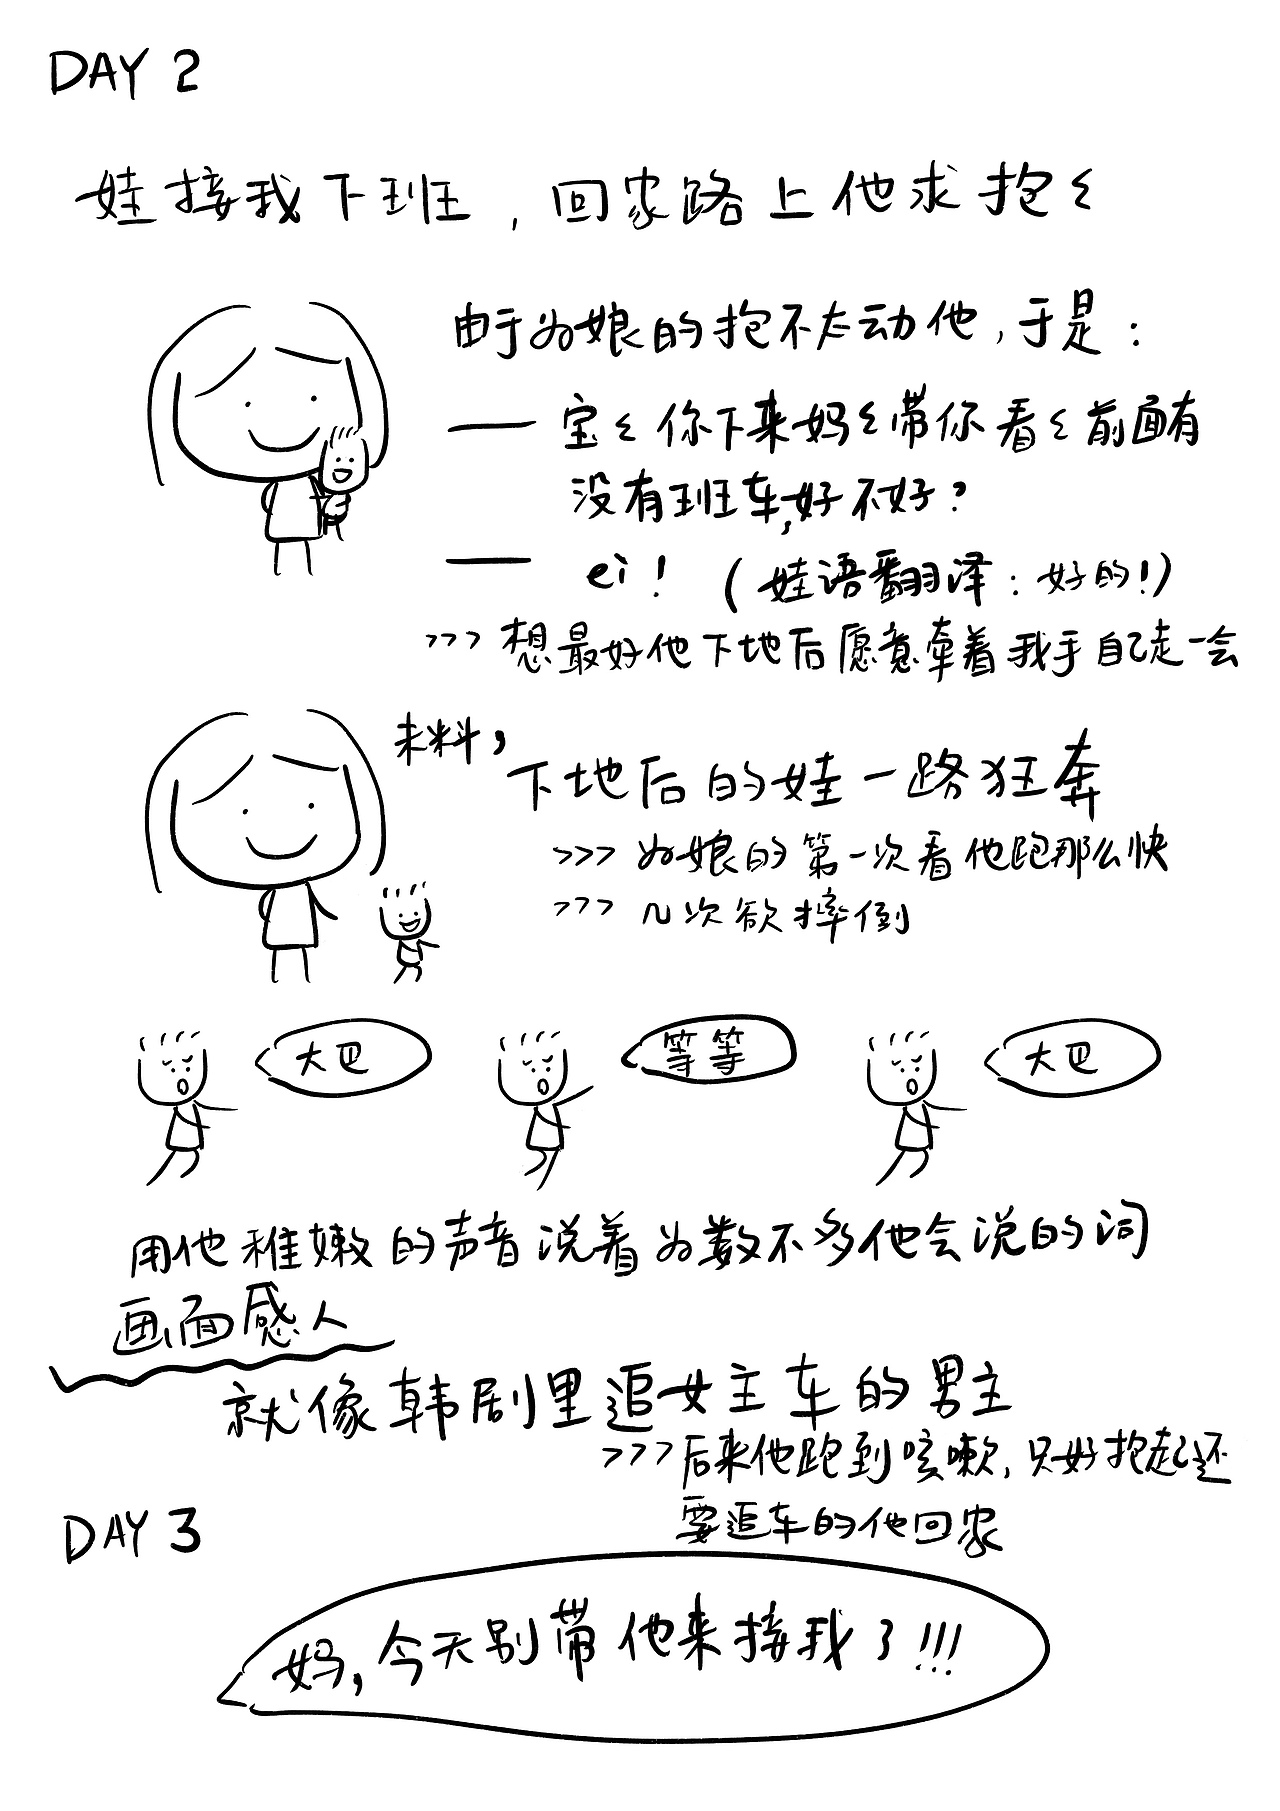 DAY 2
娃接我下班，回家路上他求抱々
由于为娘的抱不太动他，于是：
—— 宝々你下来妈々带你看々前面有
没有班车,好不好？
—— ei！（娃语翻译：好的！）
>>> 想最好他下地后愿意牵着我手自己走一会
未料，
下地后的娃一路狂奔
>>> 为娘的第一次看他跑那么快
>>> 几次欲摔倒
大巴
等等
大巴
用他稚嫩的声音说着为数不多他会说的词
画面感人
就像韩剧里追女主车的男主
>>> 后来他跑到咳嗽，只好抱起还
要追车的他回家
DAY 3
妈，今天别带他来接我了!!!